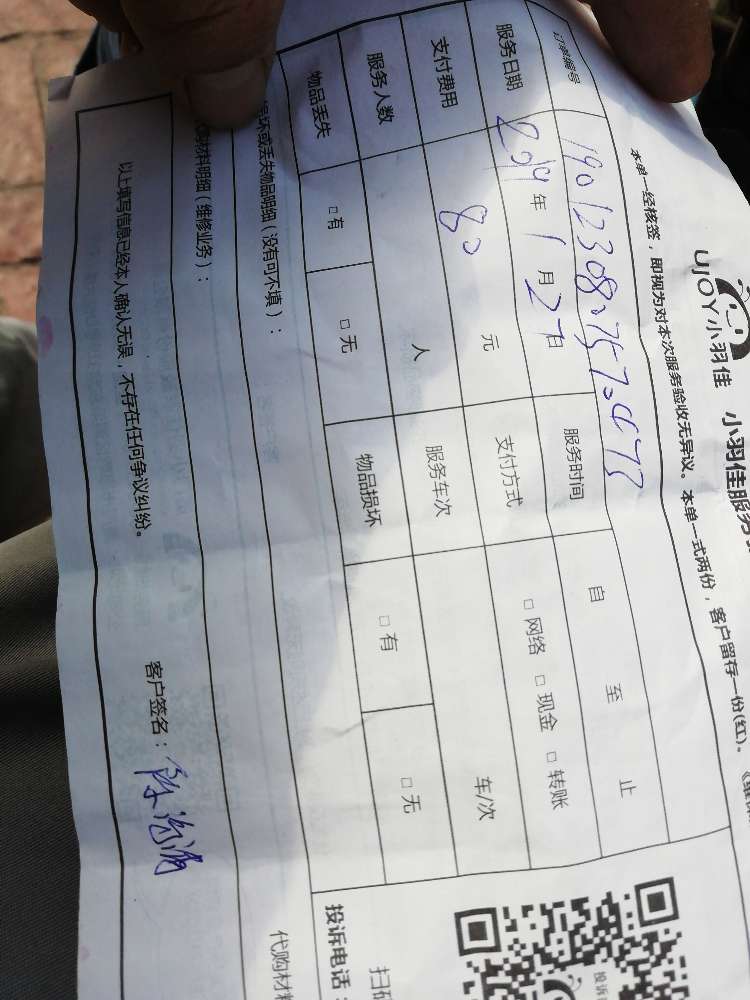 UJOY小羽佳 小羽佳服务
本单一经核签，即视为对本次服务验收无异议。本单一式两份，客户留存一份(红)。
订单编号
服务日期 2019 年 1 月 27 日 服务时间 自 至 止
支付费用 80 元 支付方式 □ 网络 □ 现金 □ 转账
服务人数 人 服务车次 车次
物品丢失 □ 有 □ 无 物品损坏 □ 有 □ 无
损坏或丢失物品明细（没有可不填）：
材料明细（维修业务）：
以上填写信息已经本人确认无误，不存在任何争议纠纷。
客户签名：
投诉
投诉电话：
扫
代购材料